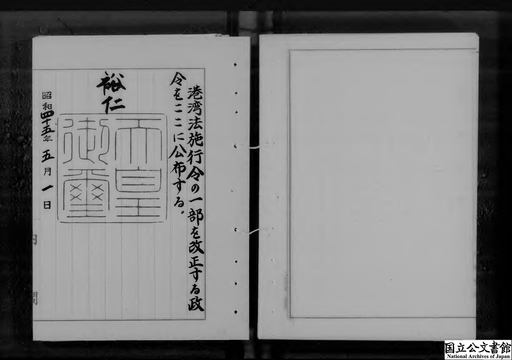 港湾法施行令の一部を改正する政
令をここに公布する。
裕仁
天皇
御璽
昭和四十五年五月一日
内閣
国立公文書館
National Archives of Japan